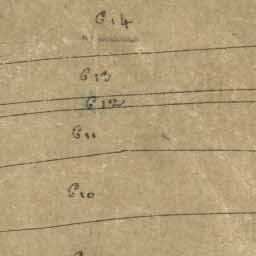 C 14
C 13
C 12
C 11
C 10